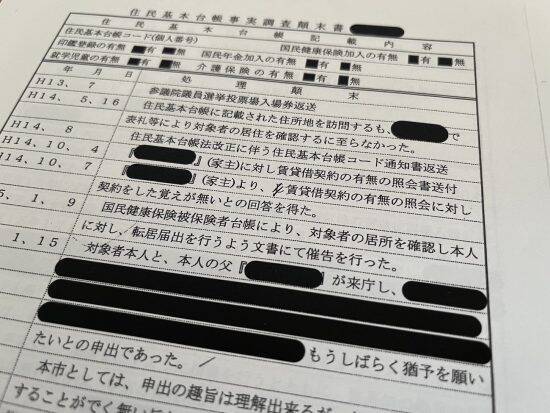 住民基本台帳事実調査顛末書
住民基本台帳記載内容
住民基本台帳コード(個人番号) 国民健康保険加入の有無 有 無
印鑑登録の有無 有 無 国民年金加入の有無 有 無
就学児童の有無 有 無 介護保険の有無 有 無
年 月 日 処理顛末
H13. 7 参議院議員選挙投票場入場券返送
H14. 5.16 住民基本台帳に記載された住所地を訪問するも、 で
表札等により対象者の居住を確認するに至らなかった。
H14. 8 住民基本台帳法改正に伴う住民基本台帳コード通知書返送
H14.10. 4 『 』(家主)に対し賃貸借契約の有無の照会書送付
H14.10. 7 『 』(家主)より、賃貸借契約の有無の照会に対し
契約をした覚えが無いとの回答を得た。
5. 1. 9 国民健康保険被保険者台帳により、対象者の居所を確認し本人
に対し、転居届出を行うよう文書にて催告を行った。
1.15 対象者本人と、本人の父『 』が来庁し、
もうしばらく猶予を願い
たいとの申出であった。
本市としては、申出の趣旨は理解出来るが
することがで